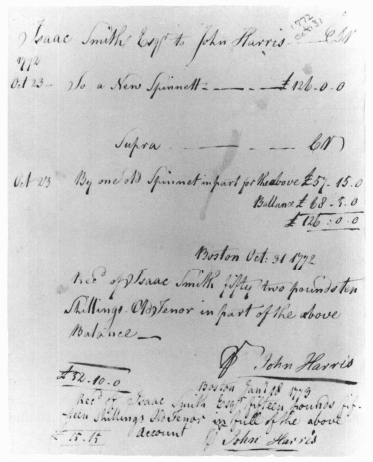 1772
Oct. 31
Isaac Smith Esqr. to John Harris
1772
Oct 23 — To a New Spinnett — £ 126-0-0
Supra
Oct 23 By one old Spinnet in part for the above £57-15.0
Ballance £ 68-5.0
£ 126:0-0
Boston Oct: 31 1772
Recd. of Isaac Smith fifty two pounds ten
Shillings Old Tenor in part of the above
Balance —
£52-10.0 John Harris
Boston Jany 18 1773
Recd. of Isaac Smith Esqr. fifteen pounds fif-
teen Shillings Old Tenor in full of the above
£15-15 account John Harris